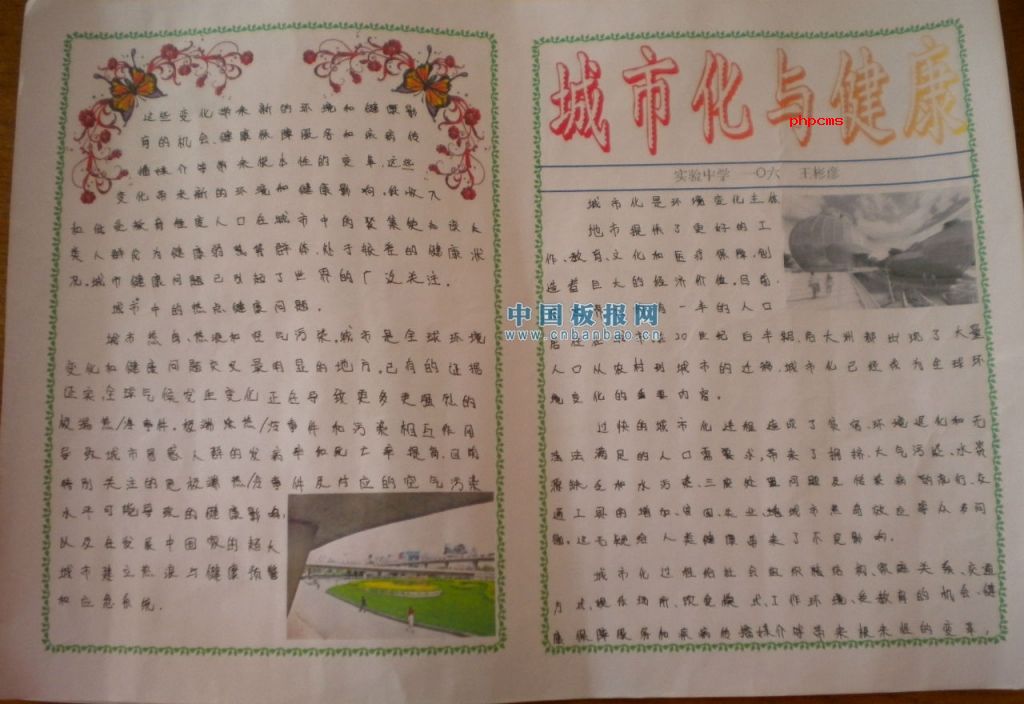 这些变化带来新的环境和健康影
有的机会、健康保障服务和疾病传
播媒介等带来根本性的变革,这些
变化带来新的环境和健康影响,低收入
和低受教育程度人口在城市中的聚集使和该
类人群成为健康弱势群体,处于较差的健康状
况,城市健康问题已引起了世界的广泛关注。
城市中的热点健康问题。
城市热岛、热浪和空气污染,城市是全球环境
变化和健康问题交叉最明显的地方,已有的证据
证实,全球气候变化正在导致更多更强烈的
极端热/冷事件,极端炎热/冷事件和污染相互作用
导致城市易感人群的发病率和死亡率提高,目前
特别关注的是极端热/冷事件及对应的空气污染
水平可能导致的健康影响,
以及在发展中国家的超大
城市建立热浪与健康预警
和应急系统.
城市化与健康
phpcms
实验中学 一〇六 王彬彦
城市化是环境变化主体
地市提供了更好的工
作、教育、文化和医疗保障,创
造着巨大的经济价值,目前,
一半的人口
中国板报网
www.cnbanbao.cn
20世纪后半期各大州都出现了大量
人口从农村到城市的迁移,城市化已经成为全球环
境变化的重要内容。
过快的城市化进程造成了贫富、环境退化和无
法满足的人口需要求,带来了拥挤、大气污染、水资
源缺乏和水污染、三废处置问题及传染病的流行、交
通工具的增加、贫困、失业、城市热岛效应等众多问
题。这无疑给人类健康带来了不良影响.
城市化过程给社会组织结构、家庭关系、交通
方式、居住场所、饮食模式、工作环境、受教育的机会、健
康保障服务和疾病传播媒介等带来根本性的变革,